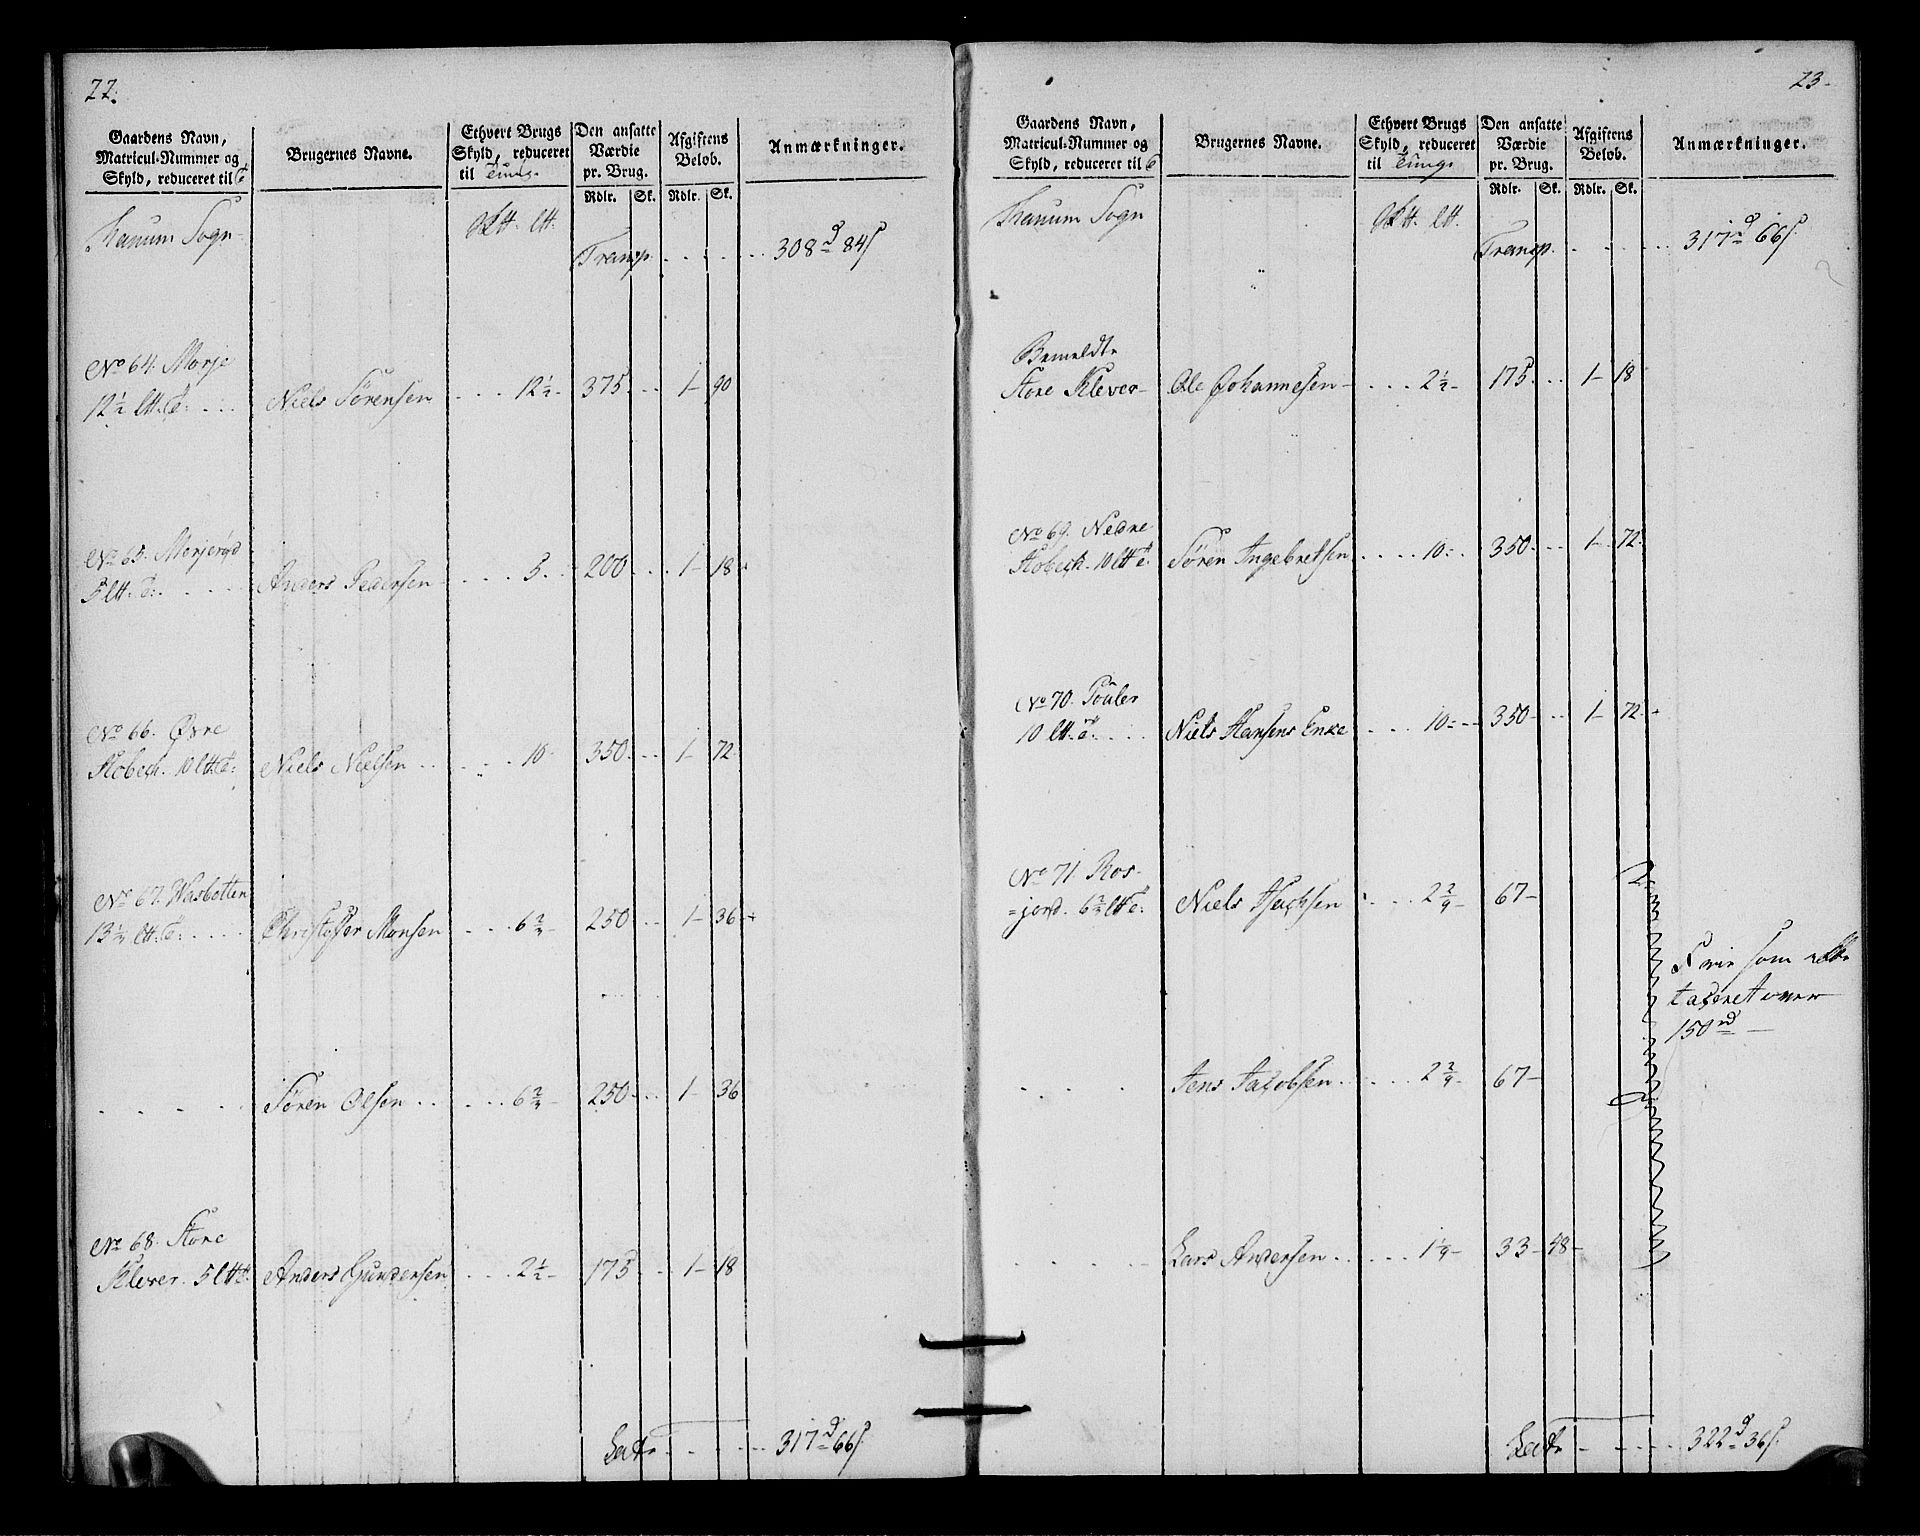 22.
Gaardens Navn, Matricul-Nummer og Skyld, reduceret til
Brugernes Navne.
Ethvert Brugs Skyld, reduceret til Tunge
Den ansatte Værdie pr. Brug.
Rdlr. Sk.
Afgiftens Beløb.
Rdlr. Sk.
Anmærkninger.
Tranum Sogn
Transp. 308 d 84 s
No 64. Morje
12½ Niels Sørensen 12½ 375 1 90
No 65. Morjerød
5 Anders Pedersen 5 200 1 18
No 66. Øvre
Stobech. 10 Niels Nielsen 10 350 1 72
No 67. Wasbotten
13⅓ Christoffer Monsen 6⅔ 250 1 36
Søren Olsen 6⅔ 250 1 36
No 68. Store
Klever. 5 Anders Gundersen 2½ 175 1 18
Latr 317 d 66 s
23.
Gaardens Navn, Matricul-Nummer og Skyld, reduceret til
Brugernes Navne.
Ethvert Brugs Skyld, reduceret til Tunge
Den ansatte Værdie pr. Brug.
Rdlr. Sk.
Afgiftens Beløb.
Rdlr. Sk.
Anmærkninger.
Tranum Sogn
Transp. 317 d 66 s
Bemeldte
Store Klever Ole Johannesen 2½ 175 1 18
No 69. Nedre
Stobech. 10 Søren Ingebretsen 10 350 1 72
No 70. Pouler
10 Niels Hansens Enke 10 350 1 72
No 71 Ros-
=jord. 6⅔ Niels Isachsen 2 2/9 67
Frie som
taxeret under
150 rd
Jens Jacobsen 2 2/9 67
Lars Andersen 1 1/9 33 48
Latr 322 d 36 s